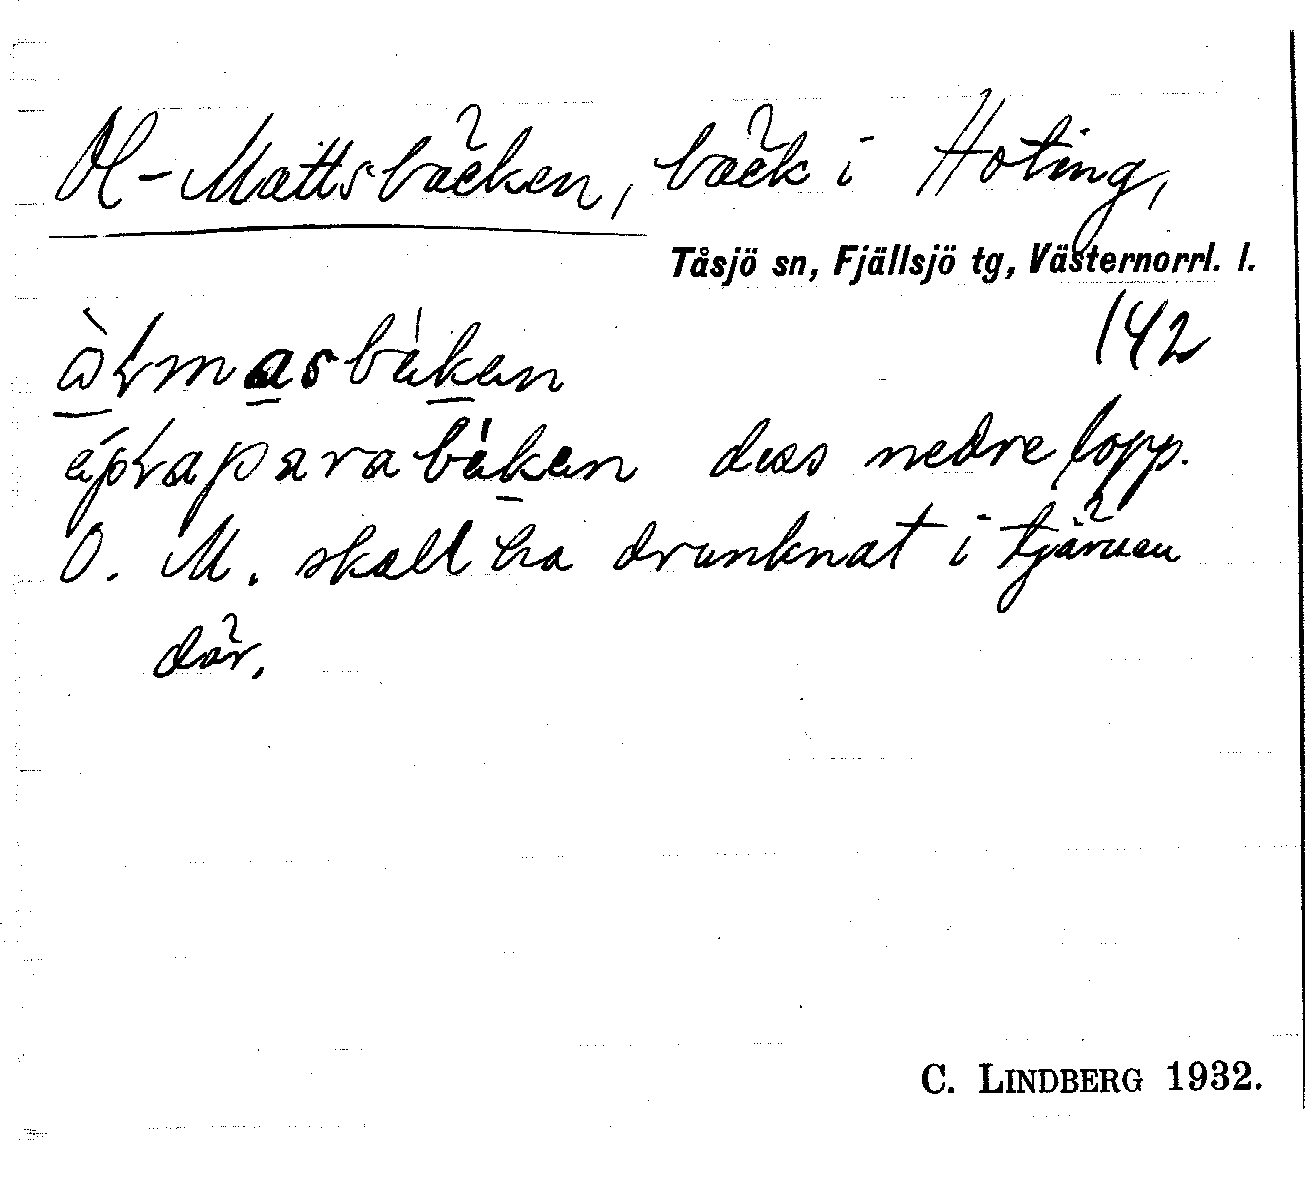 Ol-Mattsbäcken, bäck i Hoting,
Tåsjö sn, Fjällsjö tg, Västernorrl. l.
142
dess nedre lopp.
O. M. skall ha drunknat i tjärnen
där.
C. LINDBERG 1932.